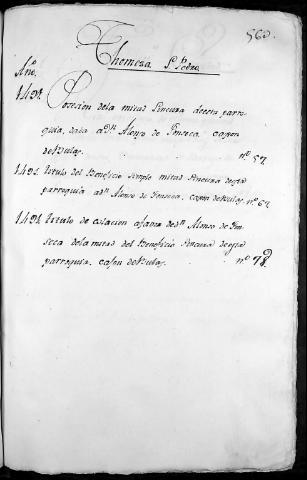 560.
Themesa S.n Pedro.
Año.
1491. Posecion de la mitad Sincura de esta parro-
quia, dada a D.n Alonso de Fonseca. cajon
de Bulas. n.o 57
1491. Titulo del Beneficio simple mitad Sincura de esta
parroquia a D.n Alonso de Fonseca, cajon de Bulas n.o 67
1491. Titulo de colacion a favor de D.n Alonso de Fon-
seca de la mitad del Beneficio Sincura de esta
parroquia. cajon de Bulas. n.o 78